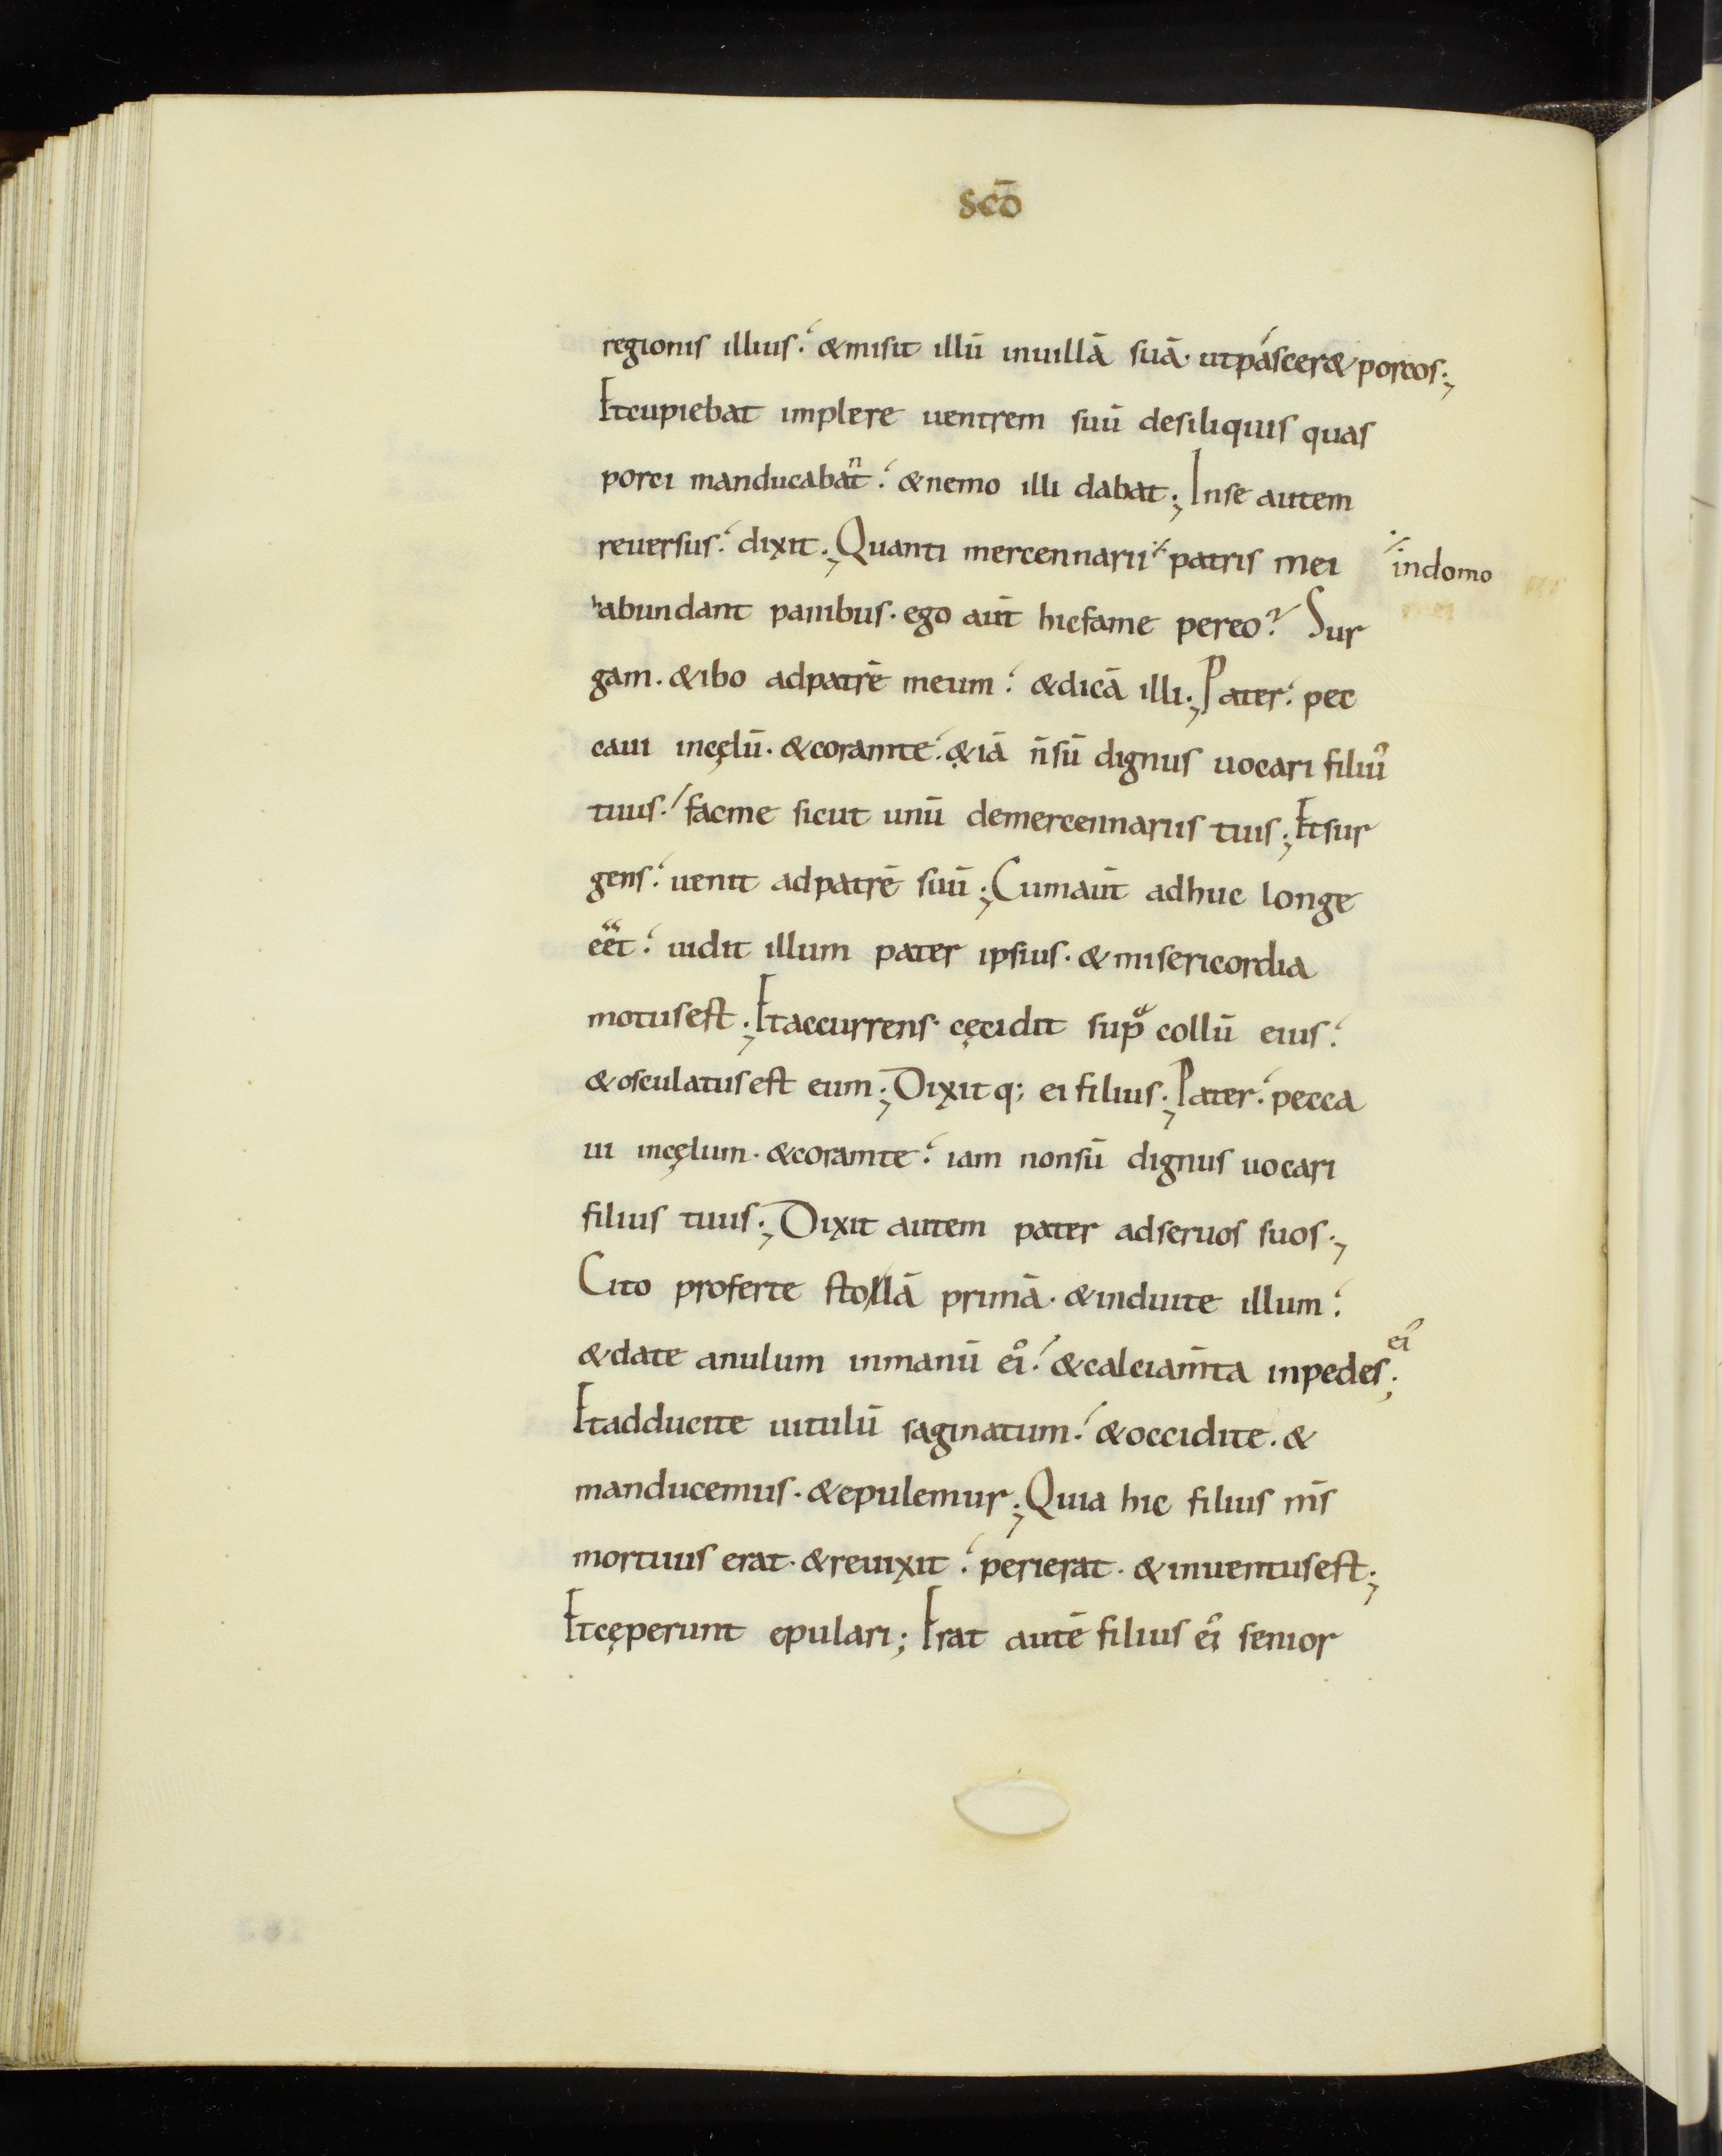 scō
regionis illius. &misit illū inuillā suā. utpáscer& porcos;
Etcupiebat implere uentrem suū desiliquis quas
porci manducabat̄ⁿ. &nemo illi dabat; Inse autem
reuersus. dixit; Quanti mercennarii patris mei
indomo
abundant panibus. ego aūt hicfame pereo? Sur
gam. &ibo adpatrē meum. &dicā illi; Pater. pec
caui incęlū. &coramte. &iā n̄sū dignus uocari filiu᾽
tuus. facme sicut unū demercennariis tuis; Etsur
gens. uenit adpatrē suū; Cumaūt adhuc longe
eēt. uidit illum pater ipsius. &misericordia
motusest; Etaccurrens. cęcidit sup̄ collū eius.
&osculatusest eum; Dixitq; ei filius; Pater. pecca
ui incęlum. &coramte. iam nonsū dignus uocari
filius tuus; Dixit autem pater adseruos suos;
Cito proferte stollā primā. &induite illum.
&date anulum inmanū ei᾽. &calciam̄ta inpedes ei᾽;
Etadducite uitulū saginatum. &occidite. &
manducemus. &epulemur; Quia hic filius m̄s
mortuus erat. &reuixit. perierat. &inuentusest;
Etcęperunt epulari; Erat autē filius ei᾽ senior